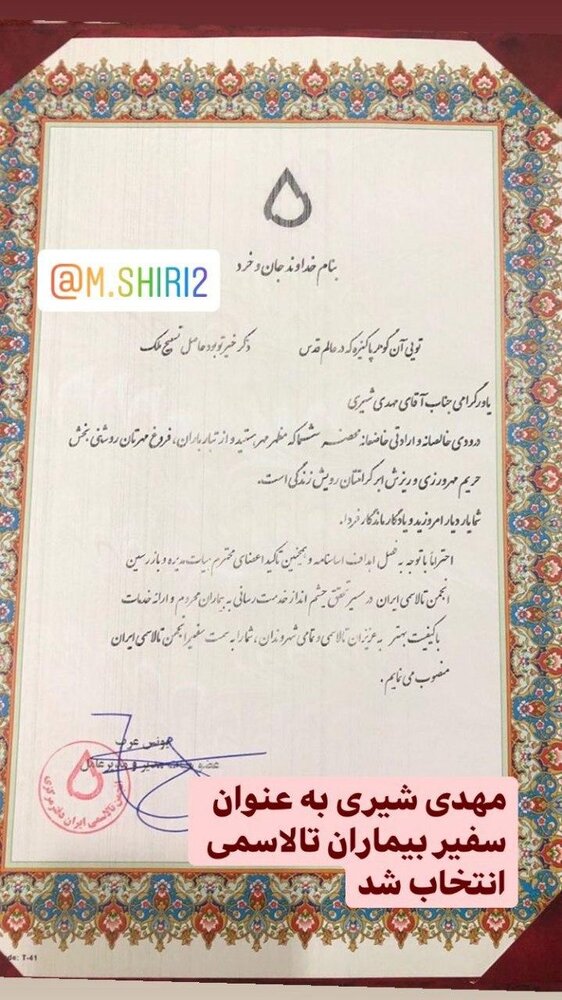 بنام خداوند جان و خرد
@M.SHIRI2
تویی آن گوهر پاکیزه که در عالم قدس ذکر خیر تو بود حاصل تسبیح ملک
یاور گرامی جناب آقای مهدی شیری
درودی خالصانه و ارادتی خاضعانه شما که مظهر مهر هستید و از تبار باران، فروغ مهرتان روشنی بخش
حریم مهرورزی و ریزش ابر کرامتتان رویش زندگی است.
شما یار دیار امروزید و یادگار ماندگار فردا.
احتراماً با توجه به فصل اهداف اساسنامه و همچنین تاکید اعضای محترم هیات مدیره و بازرسین
انجمن تالاسمی ایران در مسیر تحقق چشم انداز خدمت رسانی به بیماران و ارائه خدمات
با کیفیت بهتر به عزیزان تالاسمی و تمامی شهروندان، شما را به سمت سفیر انجمن تالاسمی ایران
منصوب می نمایم.
یونس عرب
عضو هیات مدیره و مدیرعامل
انجمن تالاسمی ایران دفتر مرکزی
مهدی شیری به عنوان
سفیر بیماران تالاسمی
انتخاب شد
de: T-41